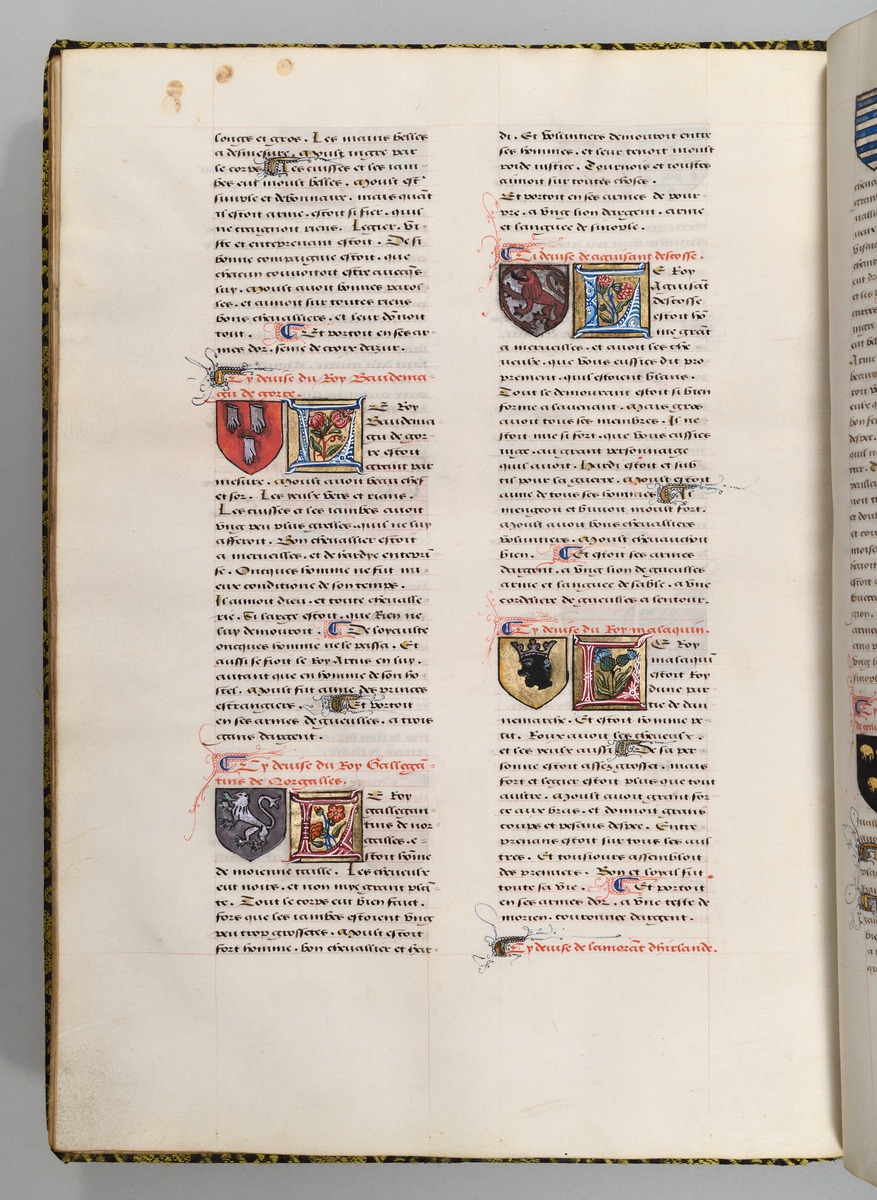 longz et gros. Les mains belles
a desmesure. Moult ingre par
le corps Les cuisses et les iam
bes eut moult belles. Moult est
simple et debonnaire. mais quāt
il estoit arme. estoit si fier. quil
ne craignoit riens. Legier. vi
ste et entreprenant estoit. De si
bonne compaignie estoit. que
chacun couuoitoit estre auecqs
luy. Moult auoit bonnes parol
les. et aimoit sur toutes riens
bons cheualliers. et leur dōnoit
tout. Et portoit en ses ar
mes dor. seme de croix dazur.
Cy deuise du Roy Baudema
gu de gorre.
LE Roy
Baudema
gu de gor
re estoit
grant par
mesure. Moult auoit beau chef
et sor. Les yeulx vers et rians.
Les cuisses et les iambes auoit
vng peu plus gresles. quil ne luy
afferoit. Bon cheuallier estoit
a merueilles. et de hardye entepri
se. Oncques homme ne fut mi
eux conditione de son temps.
Il aimoit dieu. et toute cheualle
rie. Si large estoit. que Rien ne
luy demouroit. De loyaulte
oncques homme ne le passa. Et
aussi se fioit le Roy Artus en luy.
autant que en homme de son ho
stel. Moult fut aime des princes
estrangiers. Et portoit
en ses armes de gueulles. a trois
gans dargent.
Cy deuise du Roy Gallegā
tins de Norgalles.
LE Roy
gallegan
tins de nor
galles. e
stoit hōme
de moienne taille. Les cheueulx
eut noirs. et non mye grant plā
te. Tout le corps eut bien faict.
fors que les iambes estoient vng
peu trop grossetes. Moult estoit
fort homme. bon cheuallier et har
di. Et voluntiers demouroit entre
ses hommes. et leur tenoit moult
roide iustice. Tournois et ioustes
aimoit sur toutes choses.
Et portoit en ses armes de pour
pre. a vng lion dargent. arme
et langue de sinople.
Ci deuise de aguisant descosse.
LE Roy
Aguisāt
descosse
estoit hō
me grāt
a merueilles. et auoit les che
ueulx. que vous eussies dit pro
prement. quilz estoient blans.
Tout le demourant estoit si bien
forme a lauenant. Mais gros
auoit tous ses membres. Il ne
stoit mie si fort. que vous eussies
iuge. au grant personnaige
quil auoit. Hardi estoit et sub
til pour la guerre. Moult estoit
aime de tous ses hommes Il
mengeoit et buuoit moult fort.
Moult auoit bons cheualliers
voluntiers. Moult cheuauchoit
bien. Et estoit ses armes
dargent. a vng lion de gueulles
arme et langue de sable. a vne
cordliere de gueulles a lentour.
Cy deuise du Roy malaquin.
LE Roy
malaquī
estoit Roy
dune par
tie de dan
nemarche. Et estoit homme pe
tit. Roux auoit les cheueulx.
et les yeulx aussi De sa per
sonne estoit assez grosset. mais
fort et legier estoit plus que tout
aultre. Moult auoit grant for
ce aux bras. et donnoit grans
coups et pesans despee. Entre
prenans estoit sur tous les aul
tres. Et tousiours assembloit
des premiers. Bon et loyal fut
toute sa vie. Et portoit
en ses armes dor. a vne teste de
morien. couronnee dargent.
Cy deuise de lamorāt dhirlande.